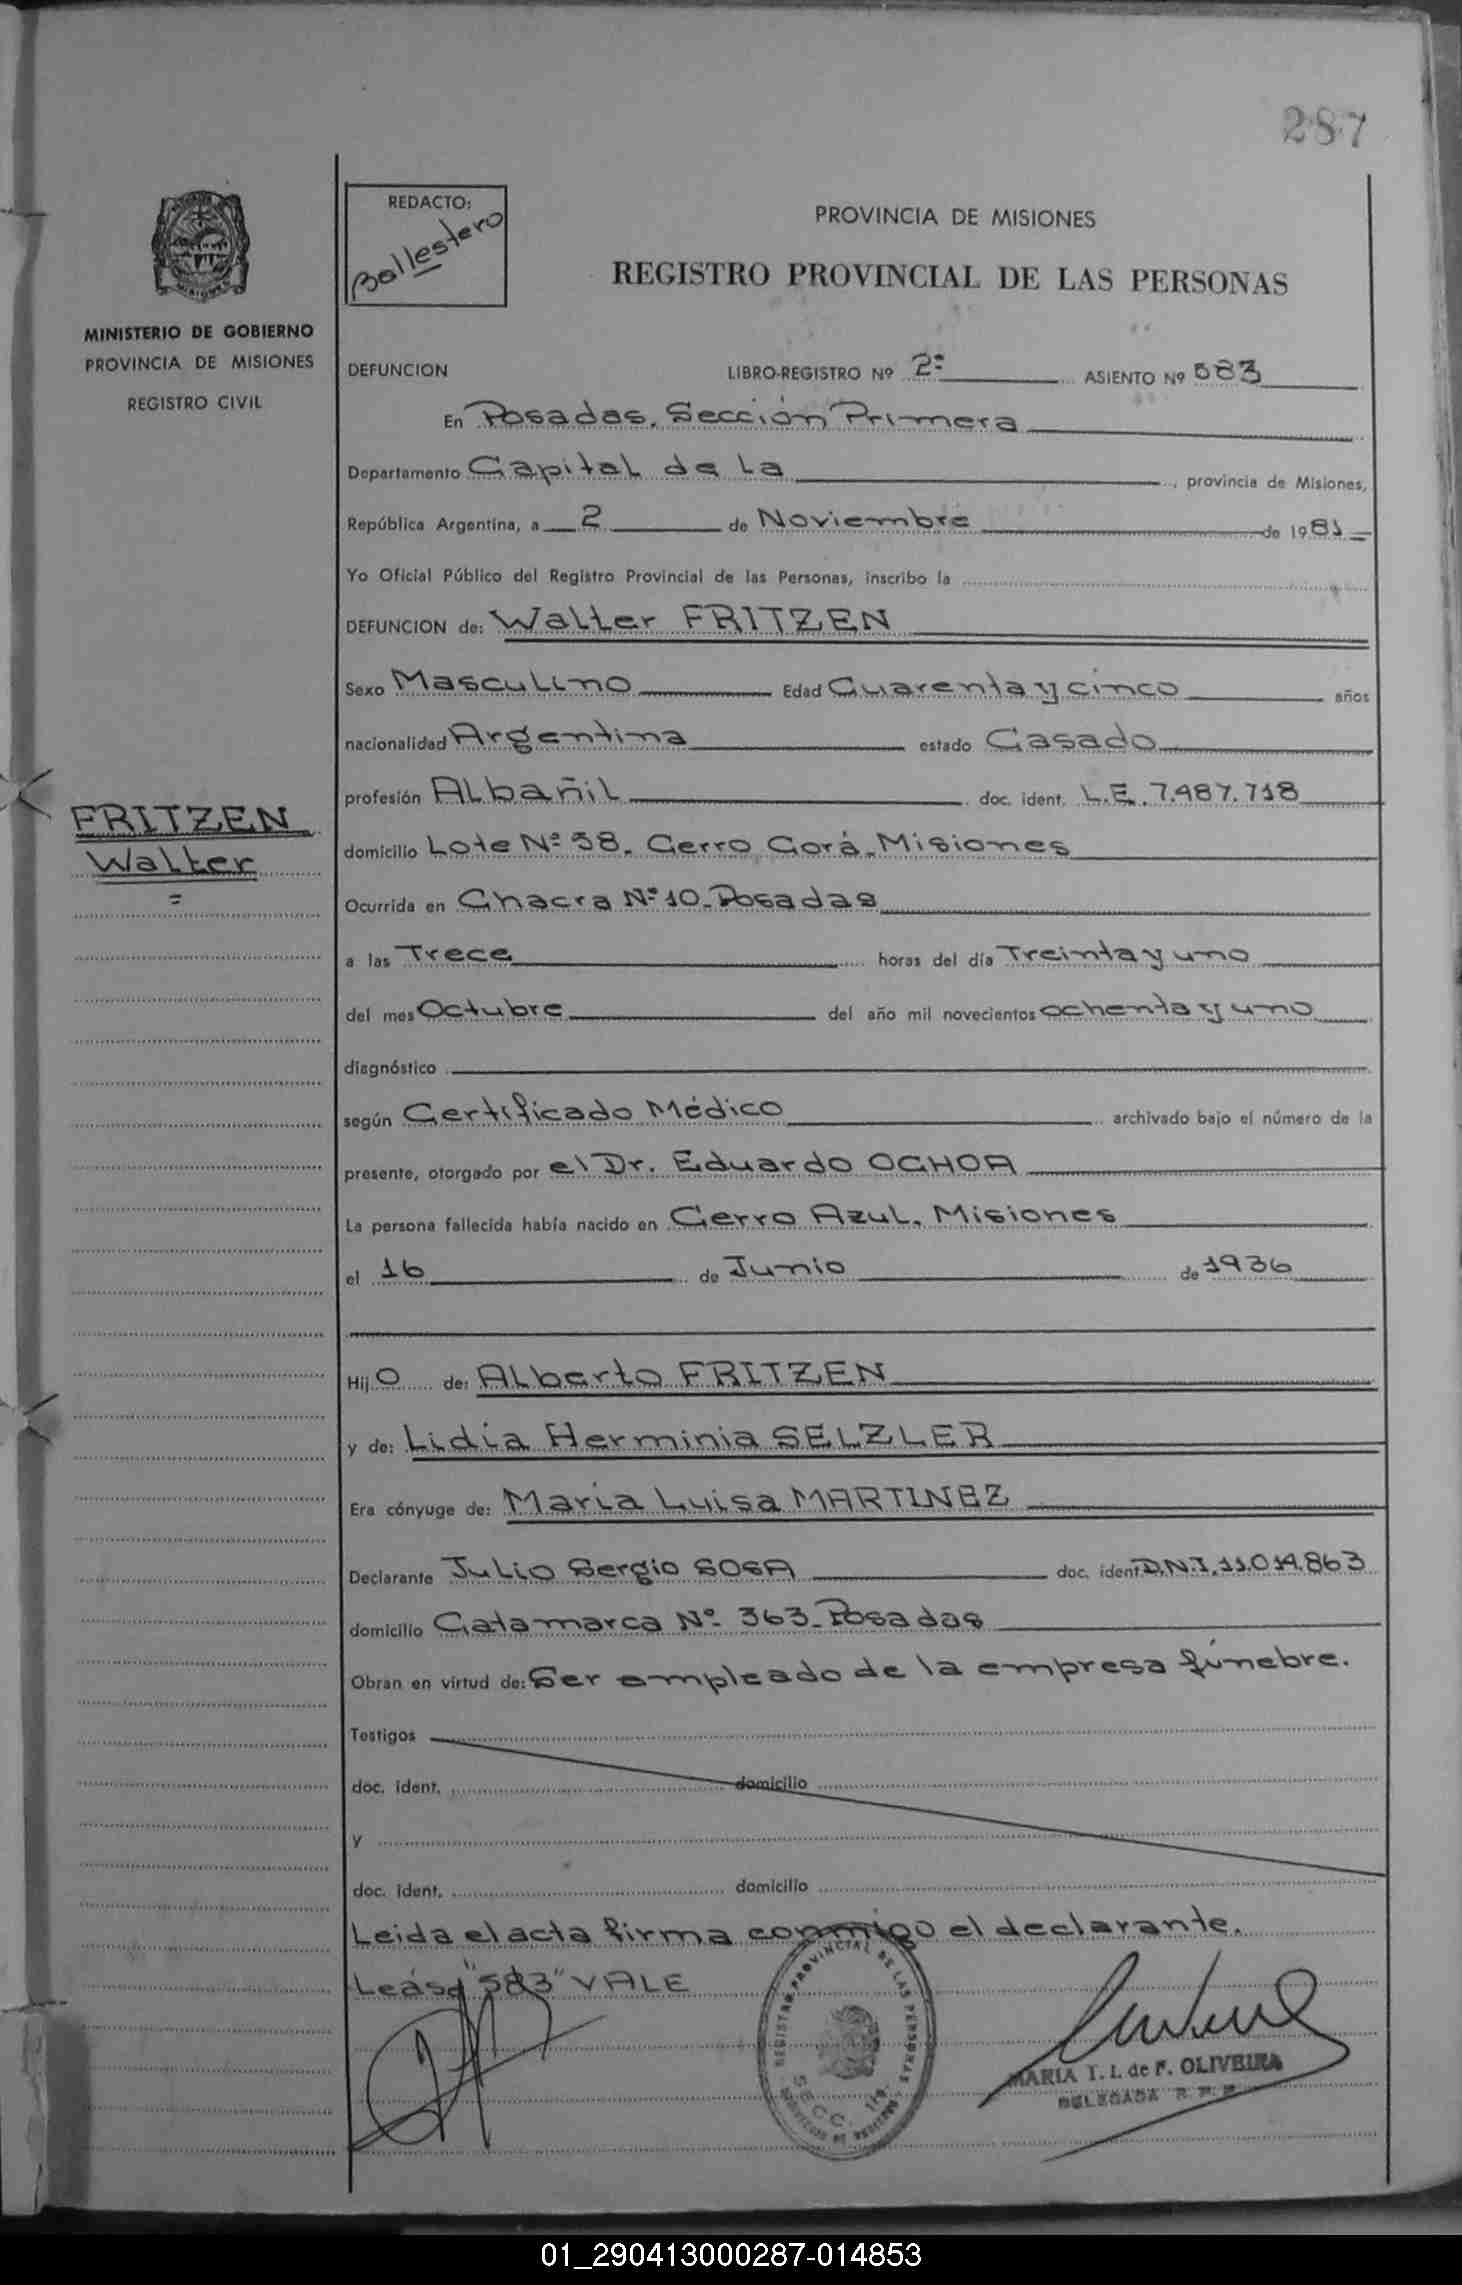 287
REDACTO:
Ballestero
PROVINCIA DE MISIONES
REGISTRO PROVINCIAL DE LAS PERSONAS
MINISTERIO DE GOBIERNO
PROVINCIA DE MISIONES
REGISTRO CIVIL
DEFUNCION LIBRO-REGISTRO Nº 2º ASIENTO Nº 583
En Posadas, Sección Primera
Departamento Capital de la, provincia de Misiones,
República Argentina, a 2 de Noviembre de 1981
Yo Oficial Público del Registro Provincial de las Personas, inscribo la
DEFUNCION de: Walter FRITZEN
Sexo Masculino Edad Cuarenta y cinco años
nacionalidad Argentina estado Casado
profesión Albañil doc. ident. L.E. 7.487.718
FRITZEN
Walter
domicilio Lote Nº 38. Cerro Corá-Misiones
Ocurrida en Chacra Nº 10-Posadas
a las Trece horas del día Treinta y uno
del mes Octubre del año mil novecientos ochenta y uno
diagnóstico
según Certificado Médico archivado bajo el número de la
presente, otorgado por el Dr. Eduardo OCHOA
La persona fallecida había nacido en Cerro Azul. Misiones
el 16 de Junio de 1936
Hijo de: Alberto FRITZEN
y de: Lidia Herminia SELZLER
Era cónyuge de: María Luisa MARTINEZ
Declarante Julio Sergio SOSA doc. ident. D.N.I. 11.014.863
domicilio Catamarca Nº 363-Posadas
Obran en virtud de: Ser empleado de la empresa fúnebre.
Testigos
doc. ident. domicilio
y
doc. ident. domicilio
Leida el acta firma conmigo el declarante.
Leáse "583" VALE
REGISTRO PROVINCIAL DE LAS PERSONAS
SECC. 1ra.
MARIA I. I. de F. OLIVEIRA
DELEGADA R. P. P.
01_290413000287-014853